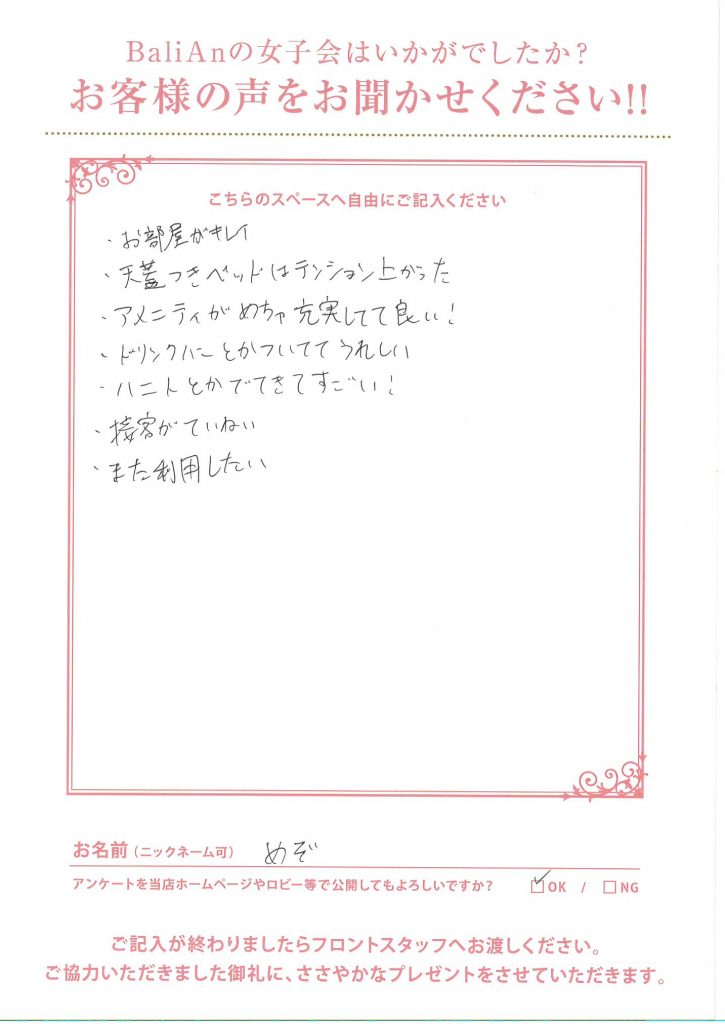 BaliAnの女子会はいかがでしたか?
お客様の声をお聞かせください!!
こちらのスペースへ自由にご記入ください
・お部屋がキレイ
・天蓋つきベッドはテンション上がった
・アメニティがめちゃ充実してて良い!
・ドリンクバーとかついててうれしい
・ハニトとかでてきてすごい!
・接客がていねい
・また利用したい
お名前(ニックネーム可) めぞ
アンケートを当店ホームページやロビー等で公開してもよろしいですか? ☑OK / □NG
ご記入が終わりましたらフロントスタッフへお渡しください。
ご協力いただきました御礼に、ささやかなプレゼントをさせていただきます。